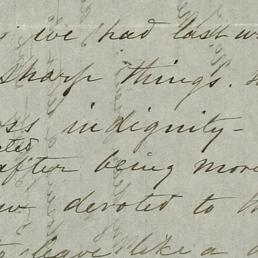 we had last w
sharp things.
ss indignity -
cted
after being more
w devoted to th
to leave like a